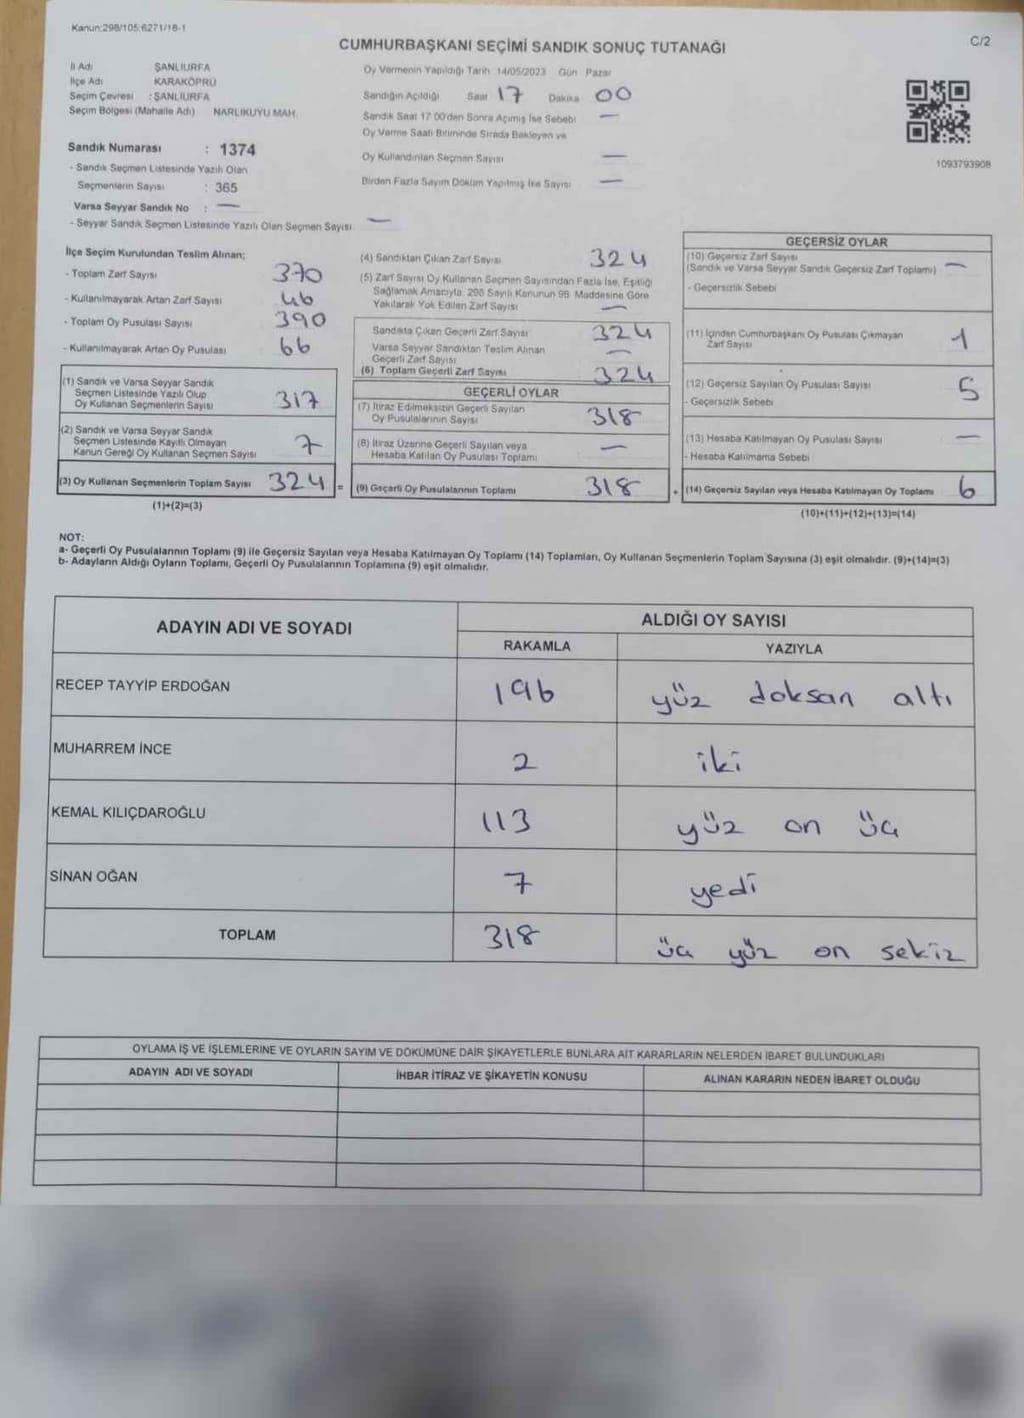 Kanun:298/105:6271/18-1
C/2
CUMHURBAŞKANI SEÇİMİ SANDIK SONUÇ TUTANAĞI
İl Adı ŞANLIURFA
İlçe Adı KARAKÖPRÜ
Seçim Çevresi : ŞANLIURFA
Seçim Bölgesi (Mahalle Adı) NARLIKUYU MAH.
Sandık Numarası : 1374
- Sandık Seçmen Listesinde Yazılı Olan
Seçmenlerin Sayısı : 365
Varsa Seyyar Sandık No : —
- Seyyar Sandık Seçmen Listesinde Yazılı Olan Seçmen Sayısı —
Oy Vermenin Yapıldığı Tarih 14/05/2023 Gün Pazar
Sandığın Açıldığı Saat 17 Dakika 00
Sandık Saat 17:00'den Sonra Açımış İse Sebebi —
Oy Verme Saati Bitiminde Sırada Bekleyen ve
Oy Kullandırılan Seçmen Sayısı —
Birden Fazla Sayım Döküm Yapılmış İse Sayısı —
1093793908
İlçe Seçim Kurulundan Teslim Alınan;
- Toplam Zarf Sayısı 370
- Kullanılmayarak Artan Zarf Sayısı 46
- Toplam Oy Pusulası Sayısı 390
- Kullanılmayarak Artan Oy Pusulası 66
(1) Sandık ve Varsa Seyyar Sandık
Seçmen Listesinde Yazılı Olup
Oy Kullanan Seçmenlerin Sayısı 317
(2) Sandık ve Varsa Seyyar Sandık
Seçmen Listesinde Kayıtlı Olmayan
Kanun Gereği Oy Kullanan Seçmen Sayısı 7
(3) Oy Kullanan Seçmenlerin Toplam Sayısı 324 =
(1)+(2)=(3)
(4) Sandıktan Çıkan Zarf Sayısı 324
(5) Zarf Sayısı Oy Kullanan Seçmen Sayısından Fazla İse, Eşitliği
Sağlamak Amacıyla, 298 Sayılı Kanunun 98. Maddesine Göre
Yakılarak Yok Edilen Zarf Sayısı —
Sandıkta Çıkan Geçerli Zarf Sayısı 324
Varsa Seyyar Sandıktan Teslim Alınan
Geçerli Zarf Sayısı —
(6) Toplam Geçerli Zarf Sayısı 324
GEÇERLİ OYLAR
(7) İtiraz Edilmeksizin Geçerli Sayılan
Oy Pusulalarının Sayısı 318
(8) İtiraz Üzerine Geçerli Sayılan veya
Hesaba Katılan Oy Pusulası Toplamı —
(9) Geçerli Oy Pusulalarının Toplamı 318 +
GEÇERSİZ OYLAR
(10) Geçersiz Zarf Sayısı
(Sandık ve Varsa Seyyar Sandık Geçersiz Zarf Toplamı) —
- Geçersizlik Sebebi
(11) İçinden Cumhurbaşkanı Oy Pusulası Çıkmayan
Zarf Sayısı 1
(12) Geçersiz Sayılan Oy Pusulası Sayısı 5
- Geçersizlik Sebebi
(13) Hesaba Katılmayan Oy Pusulası Sayısı —
- Hesaba Katılmama Sebebi
(14) Geçersiz Sayılan veya Hesaba Katılmayan Oy Toplamı 6
(10)+(11)+(12)+(13)=(14)
NOT:
a- Geçerli Oy Pusulalarının Toplamı (9) ile Geçersiz Sayılan veya Hesaba Katılmayan Oy Toplamı (14) Toplamları, Oy Kullanan Seçmenlerin Toplam Sayısına (3) eşit olmalıdır. (9)+(14)=(3)
b- Adayların Aldığı Oyların Toplamı, Geçerli Oy Pusulalarının Toplamına (9) eşit olmalıdır.
ADAYIN ADI VE SOYADI ALDIĞI OY SAYISI
RAKAMLA YAZIYLA
RECEP TAYYİP ERDOĞAN 196 yüz doksan altı
MUHARREM İNCE 2 iki
KEMAL KILIÇDAROĞLU 113 yüz on üç
SİNAN OĞAN 7 yedi
TOPLAM 318 üç yüz on sekiz
OYLAMA İŞ VE İŞLEMLERİNE VE OYLARIN SAYIM VE DÖKÜMÜNE DAİR ŞİKAYETLERLE BUNLARA AİT KARARLARIN NELERDEN İBARET BULUNDUKLARI
ADAYIN ADI VE SOYADI İHBAR İTİRAZ VE ŞİKAYETİN KONUSU ALINAN KARARIN NEDEN İBARET OLDUĞU